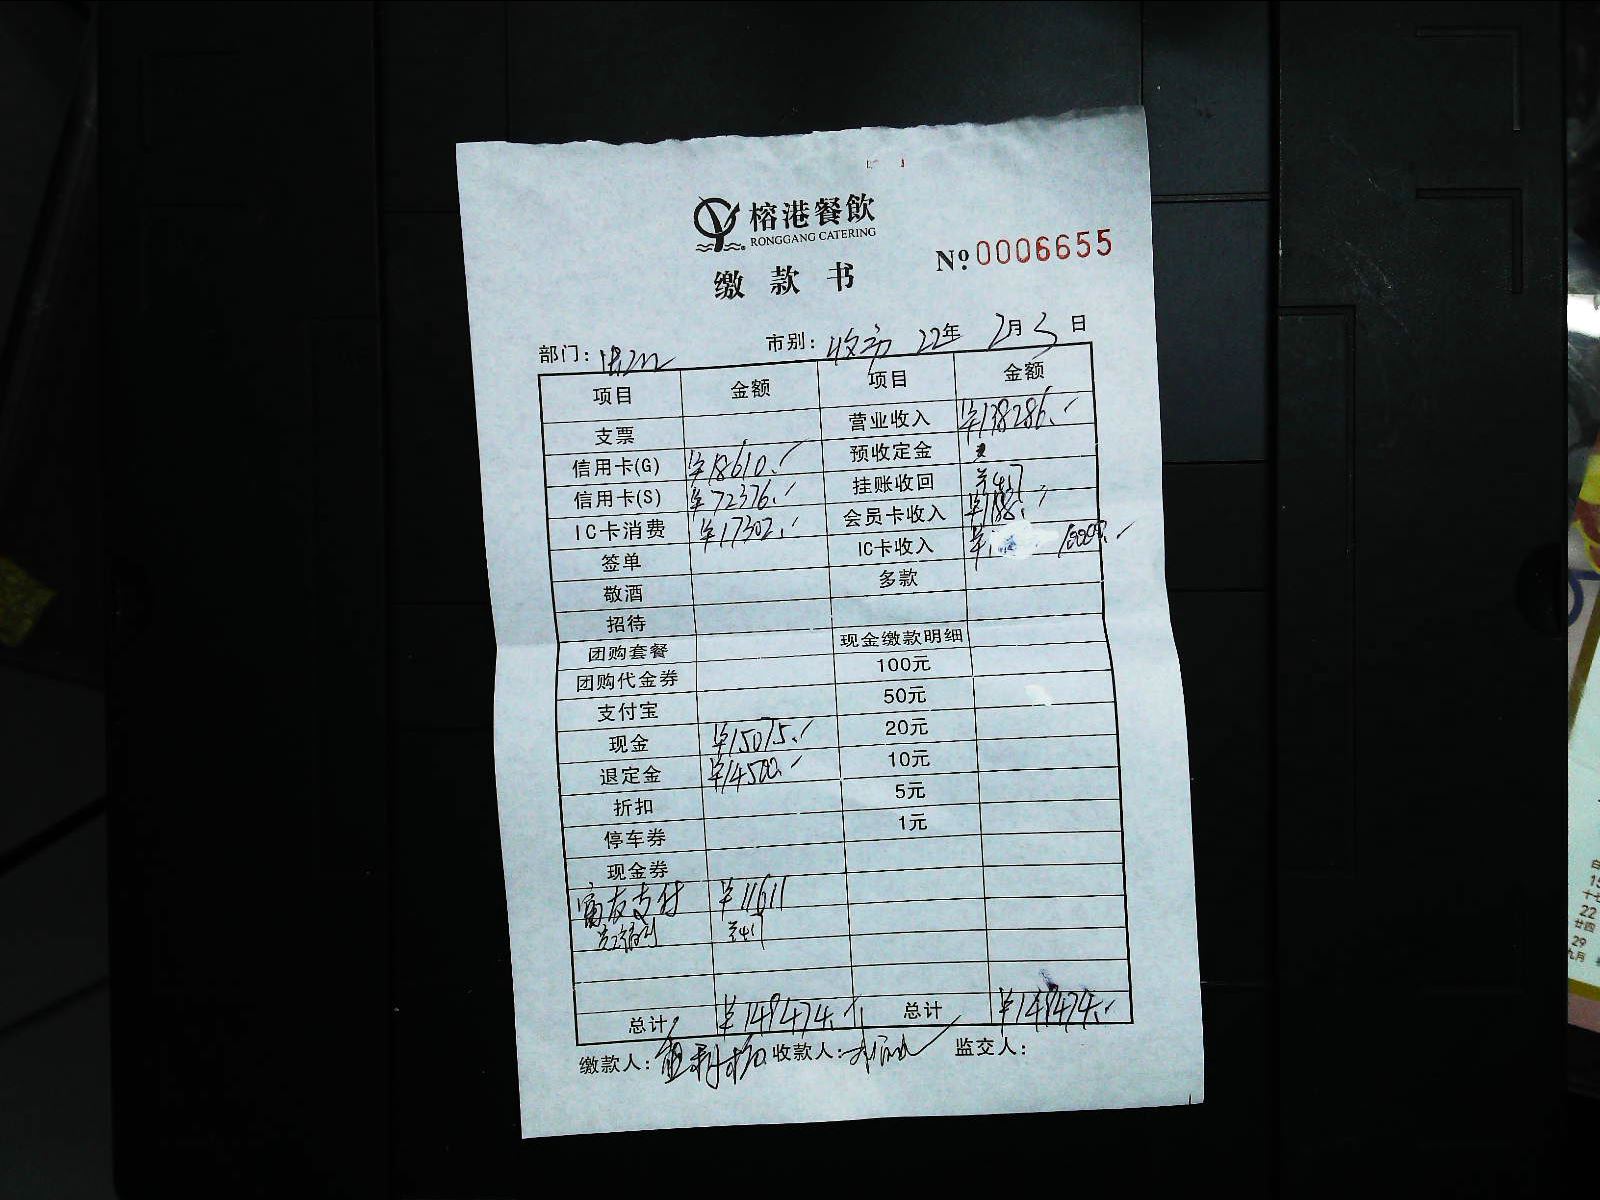 榕港餐飲
RONGGANG CATERING
No.0006655
缴款书
部门： 市别：收市 22年 2月3日
项目 金额 项目 金额
支票 营业收入 ¥138286.
信用卡(G) ¥18610. 预收定金
信用卡(S) ¥72376. 挂账收回
IC卡消费 ¥17302. 会员卡收入 ¥188.
签单 IC卡收入 ¥ 10000.
敬酒 多款
招待
团购套餐 现金缴款明细
团购代金券 100元
支付宝 50元
现金 ¥15075. 20元
退定金 ¥14500. 10元
折扣 5元
停车券 1元
现金券
富友支付 ¥11611
总计 ¥149474. 总计 ¥149474.
缴款人： 收款人： 监交人：
22
廿四
29
九月